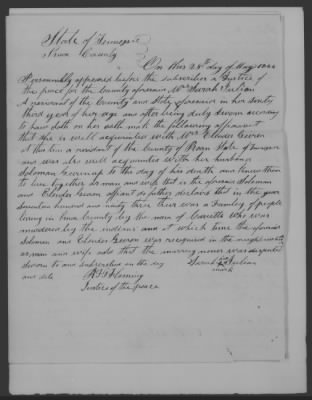 State of Tennessee
Knox County
On this 28th day of May 1844
Personally appeared before the subscriber a Justice of
the peace for the County aforesaid Mrs Sarah Julian
A resident of the County and State aforesaid in her seventy
third year of her age and after being duly sworn according
to law doth on her oath make the following affidavit
that she is well acquainted with Mrs Elender Geren
at this time a resident of the County of Roan State of Tennessee
and was also well acquainted with her husband
Solomon Geren up to the day of his death and knew them
to live together as man and wife that is the aforesaid Solomon
and Elender Geren affiant so futher declares that in the year
Seventeen hundred and ninty three their was a Family of people
living in Knox County by the name of Cavetts who was
murdered by the indians and at which time the aforesaid
Solomon and Elender Geren was recognised in the neighborhood
as man and wife and that the marriage never was disputed
sworn to and subscribed on the day
and date
Sarah her Julian
mark
Fleming
Justice of the peace